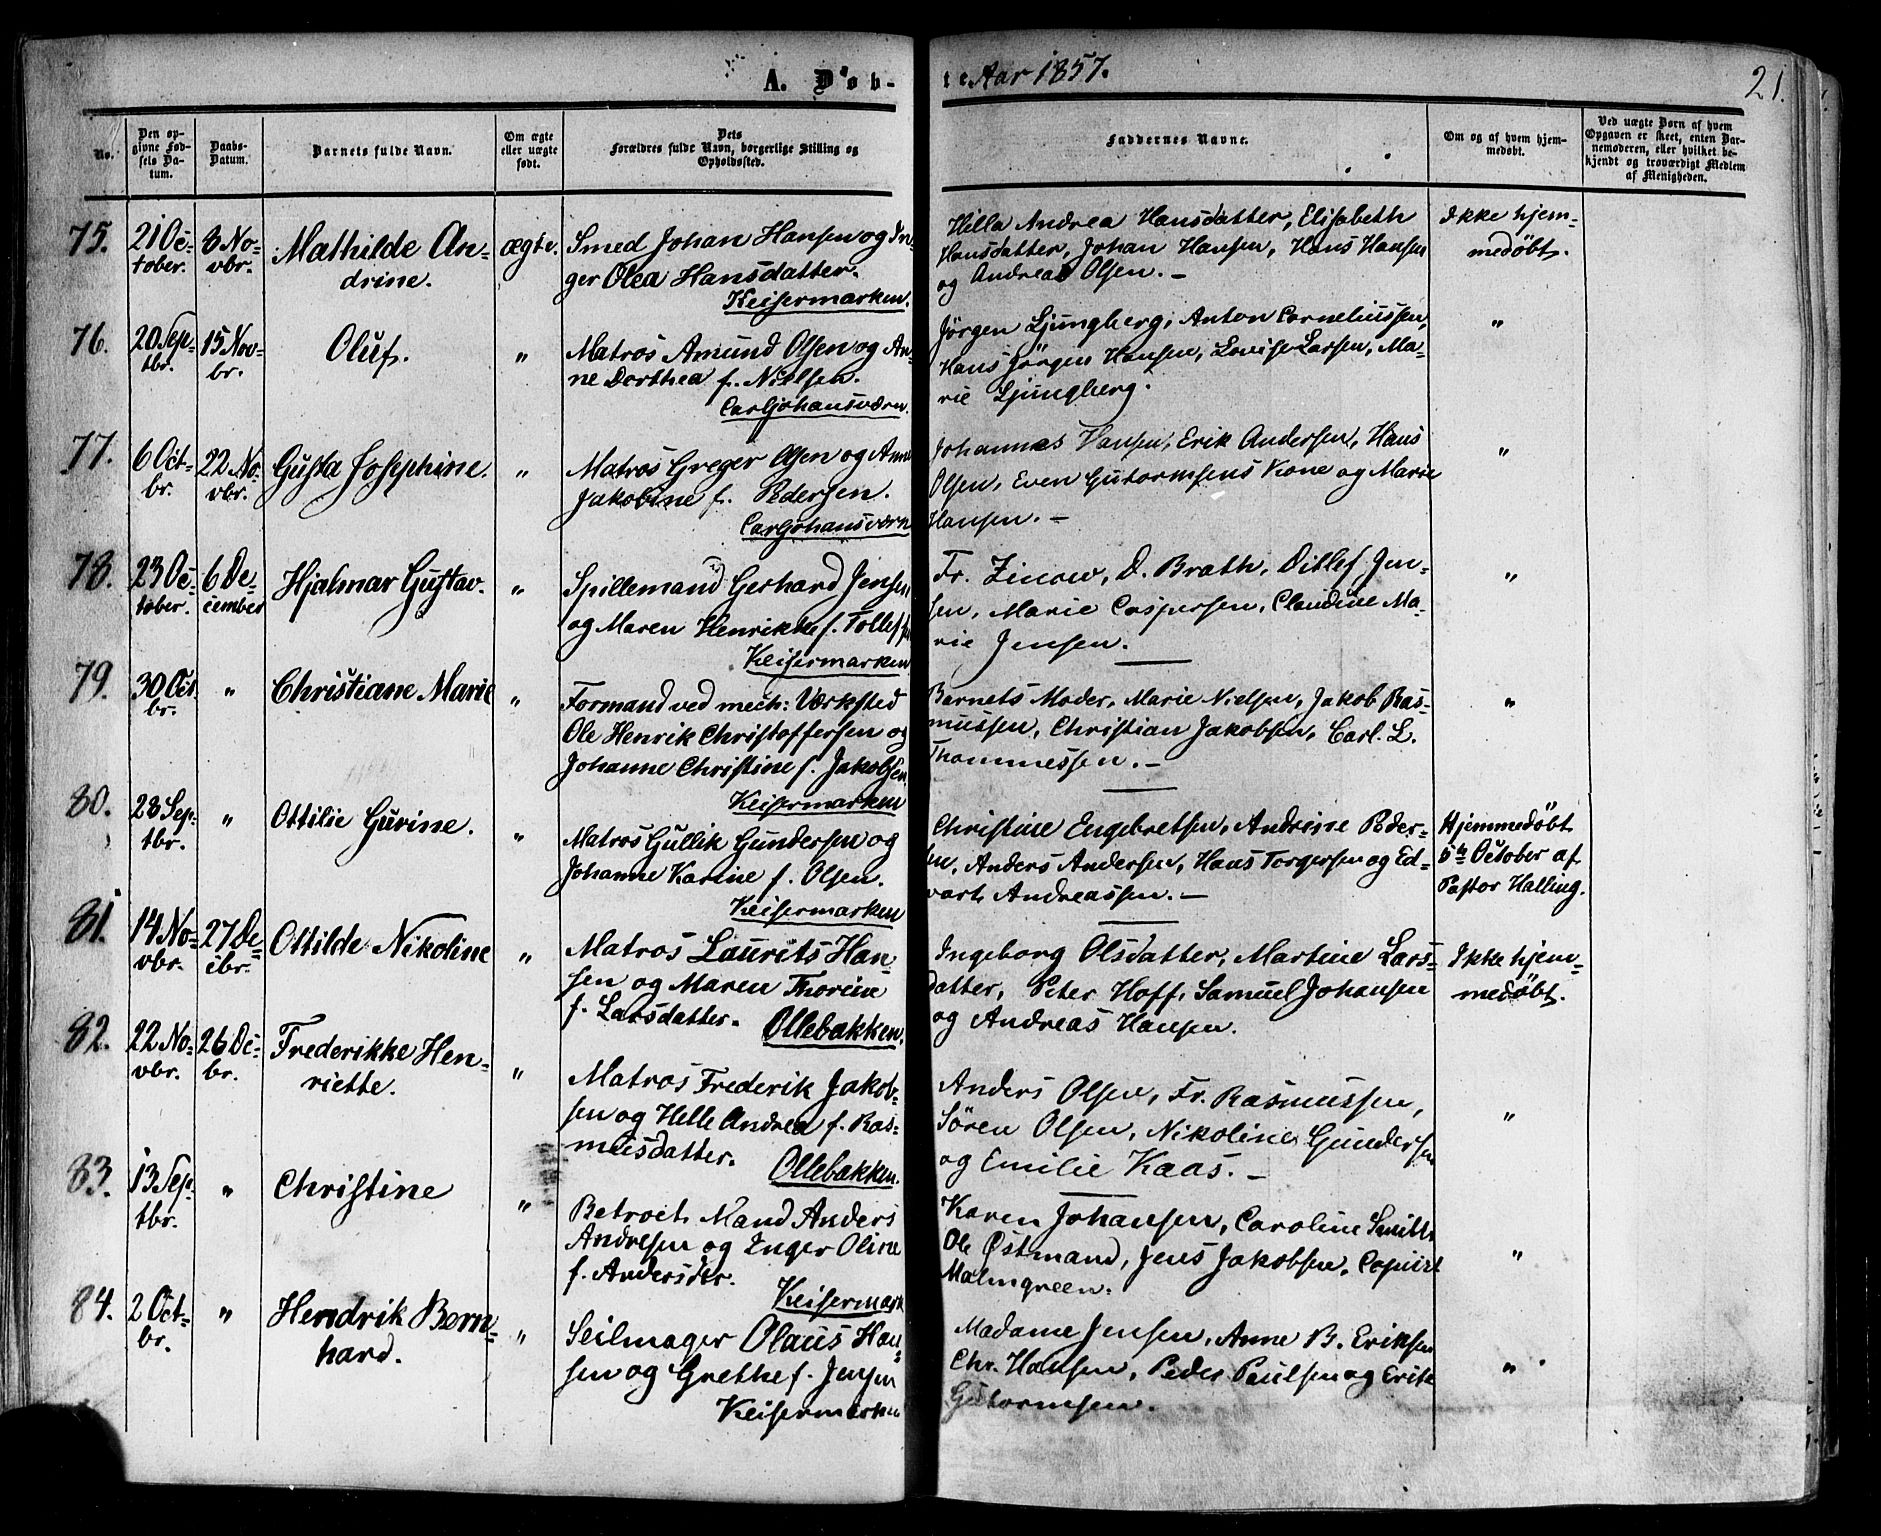 A. Døb-
te Aar 1857.
21.
No.
Den op-
givne Fød-
sels Da-
tum.
Daabs-
Datum.
Barnets fulde Navn.
Om ægte
eller uægte
født.
Dets
Forældres fulde Navn, borgerlige Stilling og
Opholdssted.
Faddernes Navne.
Om og af hvem hjem-
medøbt.
Ved uægte Børn af hvem
Opgaven er skeet, enten Bar-
nemoderen, eller hvilket be-
kjendt og troværdigt Medlem
af Menigheden.
75.
21 Oc-
tober.
8 No-
vbr.
Mathilde An-
drine.
ægte.
Smed Johan Hansen og In-
ger Olea Hansdatter.
Keisermarken.
Hella Andrea Hansdatter, Elisabeth
Hansdatter, Johan Hansen, Hans Hansen
og Andreas Olsen. –
Ikke hjem-
medøbt.
76.
20 Sep-
tbr.
15 Nov-
br.
Oluf.
"
Matros Amund Olsen og An-
ne Dorthea f. Nielsen.
Carljohansværn.
Jørgen Ljungberg, Anton Corneliussen,
Hans Jørgen Hansen, Lovise Larsen, Ma-
rie Ljungberg.
"
77.
6 Oct-
br.
22 No-
vbr.
Gusta Josephine.
"
Matros Greger Olsen og Anne
Jakobine f. Pedersen.
Carljohansværn
Johannes Hansen, Erik Andersen, Hans
Olsen, Even Gutormsens Kone og Marie
Hansen. –
"
78.
23 Oc-
tober.
6 De-
cember
Hjalmar Gustav.
"
Spillemand Gerhard Jensen
og Maren Henrikke f. Tollefsen
Keisermarken
Fr. Zinow, D. Brath, Ditlef Jen-
sen, Marie Caspersen, Claudine Ma-
rie Jensen.
"
79.
30 Oct
br.
"
Christiane Marie
"
Formand ved mech: Værksted
Ole Henrik Christoffersen og
Johanne Christine f. Jakobsen
Keisermarken
Barnets Moder, Marie Nielsen, Jakob Ras-
mussen, Christian Jakobsen, Carl. L.
Thommessen. –
"
80.
28 Sep-
tbr.
"
Ottilie Gurine.
"
Matros Gullik Gundersen og
Johanne Karine f. Olsen.
Keisermarken
Christine Engebretsen, Andrine Peder-
sen, Anders Andersen, Hans Torgersen og Ed-
vart Andreassen. –
Hjemmedøbt
5te October af
Pastor Halling.
81.
14 No-
vbr.
27 De-
cbr.
Ottilde Nikoline
"
Matros Laurits Han-
sen og Maren Thorine
f. Larsdatter. Ollebakken.
Ingeborg Olsdatter, Martine Lars-
datter, Peter Hoff, Samuel Johansen
og Andreas Hansen.
Ikke hjem-
medøbt.
82.
22 No-
vbr.
26 De-
br.
Frederikke Hen-
riette.
"
Matros Frederik Jakob-
sen og Helle Andrea f. Ras-
musdatter.
Ollebakken.
Anders Olsen, Fr. Rasmussen,
Sören Olsen, Nikoline Gundersen
og Emilie Kaas. –
"
83.
13 Sep-
tbr.
"
Christine
"
Betroet Mand Anders
Andresen og Inger Oline
f. Andersdtr.
Keisermark
Karen Johansen, Caroline Smith
Ole Østmand, Jens Jakobsen, Copiist
Malmgreen.
"
84.
2 Oct-
br.
"
Hendrik Bern-
hard.
"
Seilmager Olaus Han-
sen og Grethe f. Jensen
Keisermarken
Madame Jensen, Anne B. Eriksen
Chr. Hansen, Peder Paulsen og Erik
Gutormsen.
"